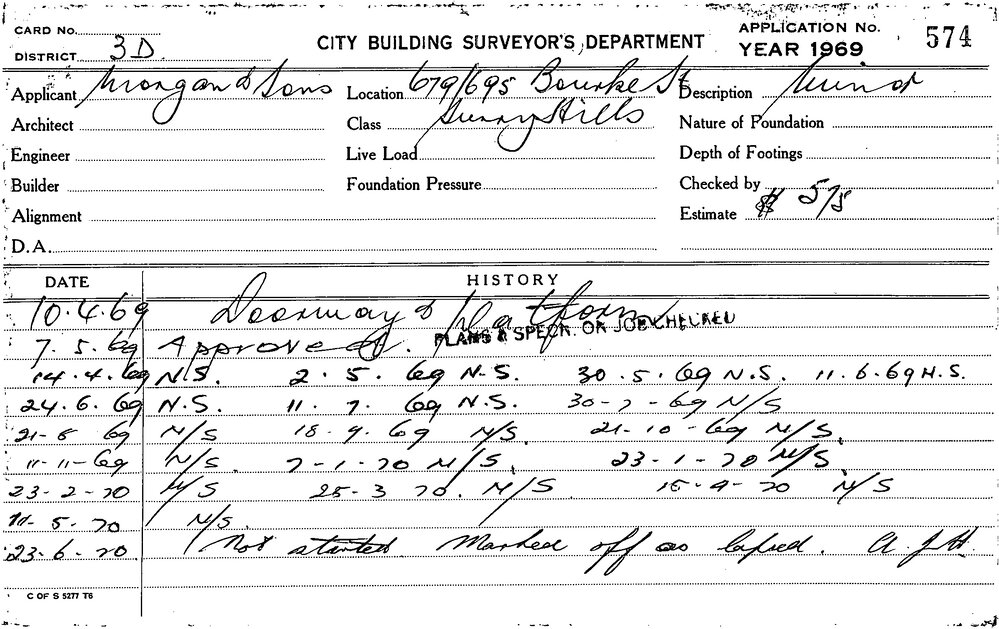 CARD No. APPLICATION No. 574
DISTRICT 3D CITY BUILDING SURVEYOR'S DEPARTMENT YEAR 1969
Applicant Morgan & Sons Location 679/695 Bourke St Description Minor
Architect Class Surry Hills Nature of Foundation
Engineer Live Load Depth of Footings
Builder Foundation Pressure Checked by
Alignment Estimate $ 575
D.A.
DATE HISTORY
10.4.69 Doorway & Platform
7.5.69 Approved. PLANS & SPECN. ON JOB
14.4.69 N.S. 2.5.69 N.S. 30.5.69 N.S. 11.6.69 N.S.
24.6.69 N.S. 11.7.69 N.S. 30-7-69 N/S
21-8 69 N/S 18.9.69 N/S. 21-10-69 N/S.
11-11-69 N/S. 7-1-70 N/S. 23-1-70 N/S.
23-2-70 N/S 25-3 70. N/S 15-4-70 N/S
5-70 N/S.
23-6-70 Not started. Marked off as lapsed.
C OF S 5277 T6